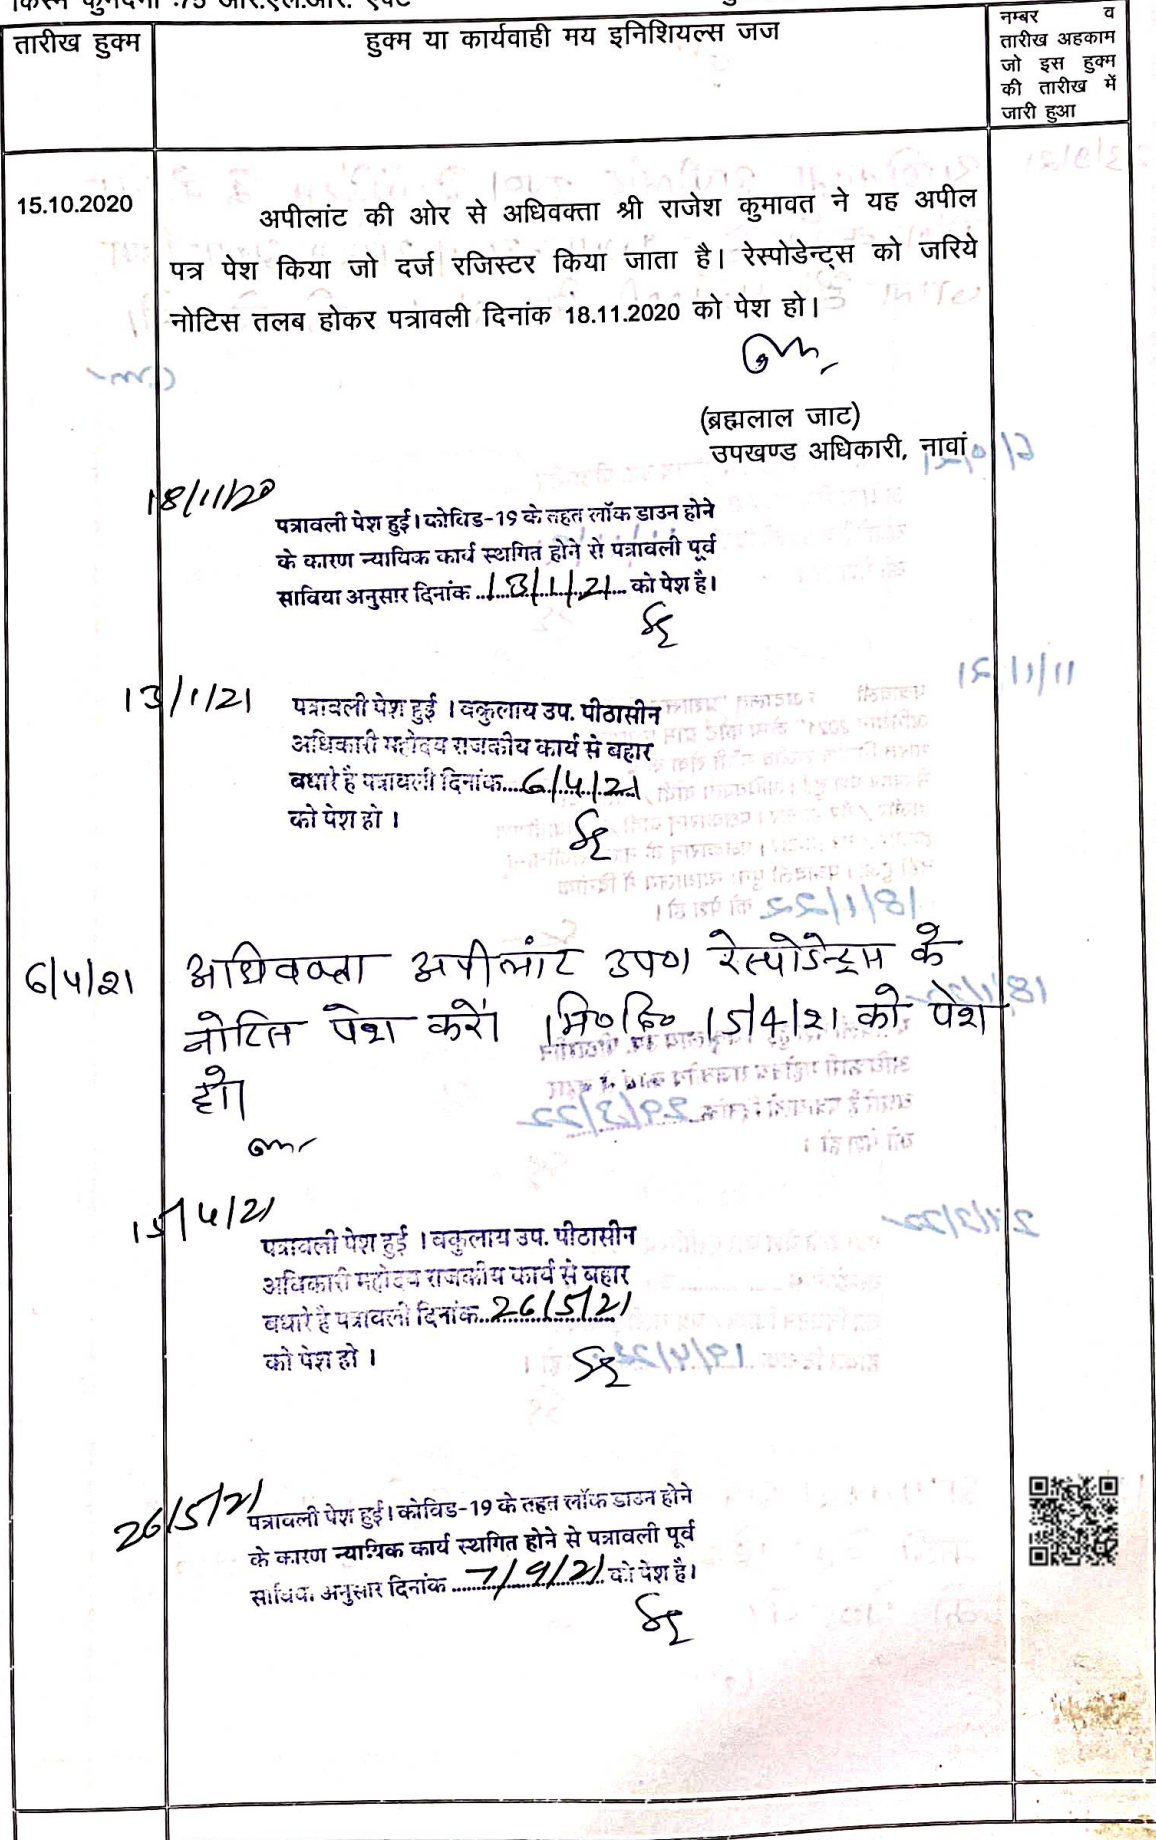 75 आर.एल.आर. एक्ट
तारीख हुक्म
हुक्म या कार्यवाही मय इनिशियल्स जज
नम्बर व
तारीख अहकाम
जो इस हुक्म
की तारीख में
जारी हुआ
15.10.2020
अपीलांट की ओर से अधिवक्ता श्री राजेश कुमावत ने यह अपील
पत्र पेश किया जो दर्ज रजिस्टर किया जाता है। रेस्पोडेन्ट्स को जरिये
नोटिस तलब होकर पत्रावली दिनांक 18.11.2020 को पेश हो।
(ब्रह्मलाल जाट)
उपखण्ड अधिकारी, नावां
18/11/20
पत्रावली पेश हुई। कोविड-19 के तहत लॉक डाउन होने
के कारण न्यायिक कार्य स्थगित होने से पत्रावली पूर्व
अनुसार दिनांक 13/1/21 को पेश है।
13/1/21
पत्रावली पेश हुई । वकुलाय उप. पीठासीन
अधिकारी महोदय राजकीय कार्य से बहार
बधारे है पत्रावली दिनांक 6/4/21
को पेश हो ।
6/4/21
अधिवक्ता अपीलांट उप0 रेस्पोडेन्ट्स के
नोटिस पेश करें। 15/4/21 को पेश
हो।
15/4/21
पत्रावली पेश हुई । वकुलाय उप. पीठासीन
अधिकारी महोदय राजकीय कार्य से बहार
बधारे है पत्रावली दिनांक 26/5/21
को पेश हो ।
26/5/21
पत्रावली पेश हुई। कोविड-19 के तहत लॉक डाउन होने
के कारण न्यायिक कार्य स्थगित होने से पत्रावली पूर्व
अनुसार दिनांक 7/9/21 को पेश है।